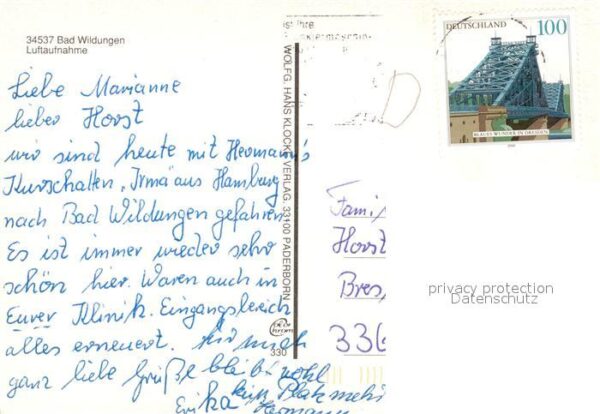 34537 Bad Wildungen
Luftaufnahme
Liebe Marianne
lieber Horst
wir sind heute mit Hermann's
Kurschatten, Irma aus Hamburg
nach Bad Wildungen gefahren.
Es ist immer wieder sehr
schön hier. Waren auch in
Eurer Klinik. Eingangsbereich
alles erneuert.
ganz liebe Grüße bleibt wohl
kein Platz mehr
Erika Hermann
WOLFG. HANS KLOCKE VERLAG, 33100 PADERBORN
330
ist Ihre
DEUTSCHLAND 100
BLAUES WUNDER IN DRESDEN
2000
Fami
Horst
Bres
336
privacy protection
Datenschutz